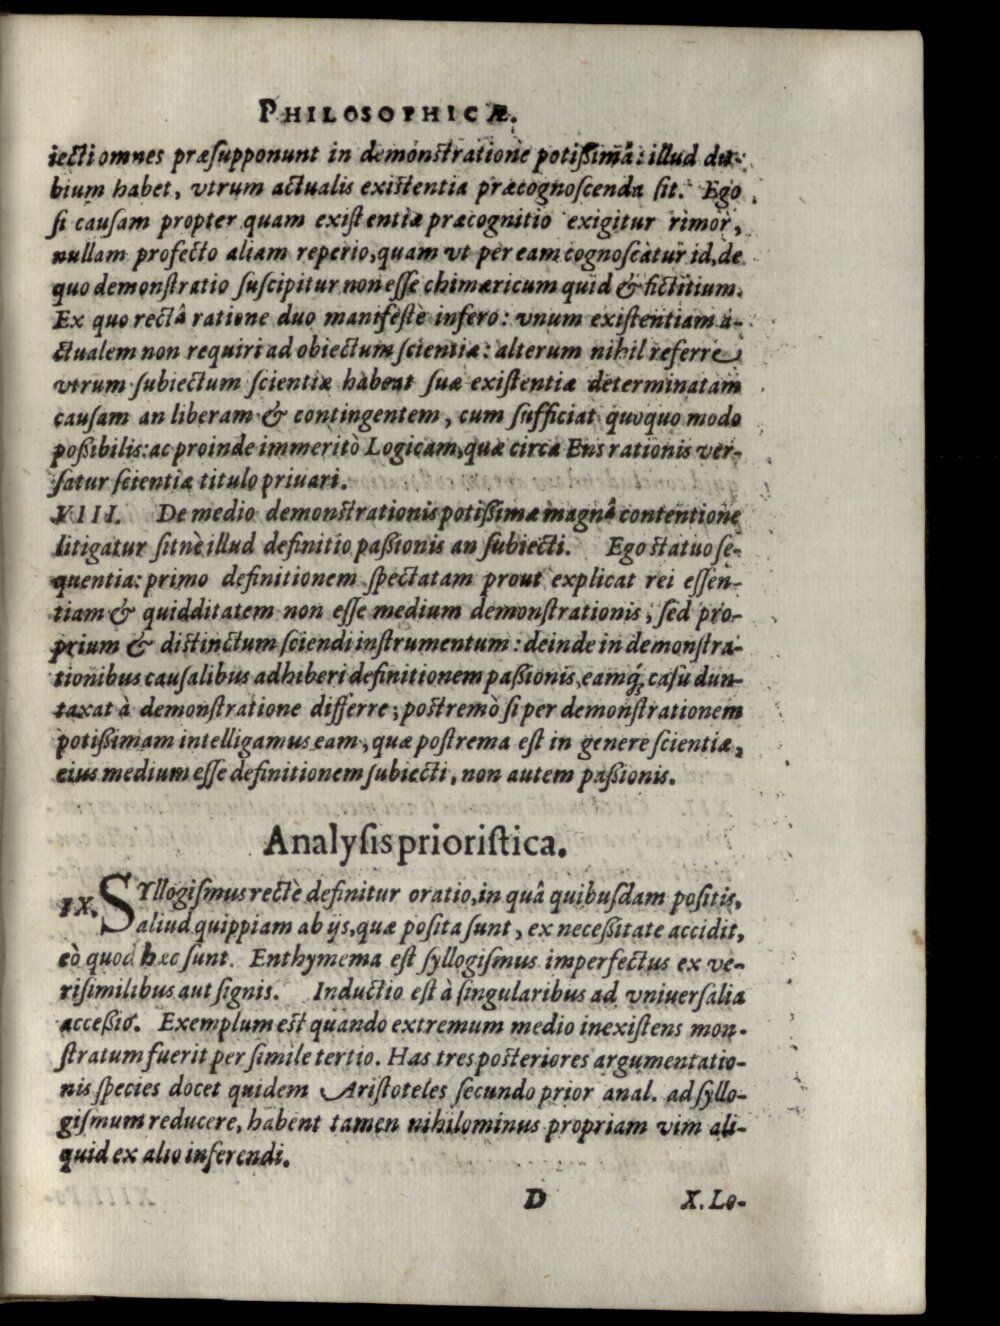 PHILOSOPHICÆ.
iecti omnes præſupponunt in demonſtratione potiſſimâ: illud du-
bium habet, vtrum actualis exiſtentia præcognoſcenda ſit. Ego
ſi cauſam propter quam exiſtentiæ præcognitio exigitur rimor,
nullam profecto aliam reperio, quam vt per eam cognoſcatur id, de
quo demonſtratio ſuſcipitur non eſſe chimæricum quid & fictitium.
Ex quo rectâ ratione duo manifeſtè infero: vnum exiſtentiam a-
ctualem non requiri ad obiectum ſcientiæ: alterum nihil referre
vtrum ſubiectum ſcientiæ habeat ſuæ exiſtentiæ determinatam
cauſam an liberam & contingentem, cum ſufficiat quoquo modo
poßibilis: ac proinde immeritò Logicam, quæ circa Ens rationis ver-
ſatur ſcientiæ titulo priuari.
VIII. De medio demonſtrationis potißimæ magnâ contentione
litigatur ſitnè illud definitio paßionis an ſubiecti. Ego ſtatuo ſe-
quentia: primo definitionem ſpectatam prout explicat rei eſſen-
tiam & quidditatem non eſſe medium demonſtrationis, ſed pro-
prium & diſtinctum ſciendi inſtrumentum: deinde in demonſtra-
tionibus cauſalibus adhiberi definitionem paßionis, eamq́; caſu dun-
taxat à demonſtratione differre; poſtremò ſi per demonſtrationem
potißimam intelligamus eam, quæ poſtrema eſt in genere ſcientiæ,
eius medium eſſe definitionem ſubiecti, non autem paßionis.
Analyſis prioriſtica.
IX. SYllogiſmus rectè definitur oratio, in quâ quibuſdam poſitis,
aliud quippiam ab ijs, quæ poſita ſunt, ex neceßitate accidit,
eò quod hæc ſunt. Enthymema eſt ſyllogiſmus imperfectus ex ve-
riſimilibus aut ſignis. Inductio eſt à ſingularibus ad vniuerſalia
acceßio. Exemplum eſt quando extremum medio inexiſtens mon-
ſtratum fuerit per ſimile tertio. Has tres poſteriores argumentatio-
nis ſpecies docet quidem Ariſtoteles ſecundo prior anal. ad ſyllo-
giſmum reducere, habent tamen nihilominus propriam vim ali-
quid ex alio inferendi.
D X. Lo-